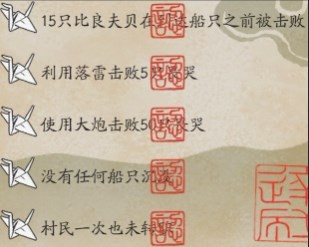 15只比良夫贝在到达船只之前被击败
利用落雷击败5只哭
使用大炮击败50只哭
没有任何船只沉
村民一次也未